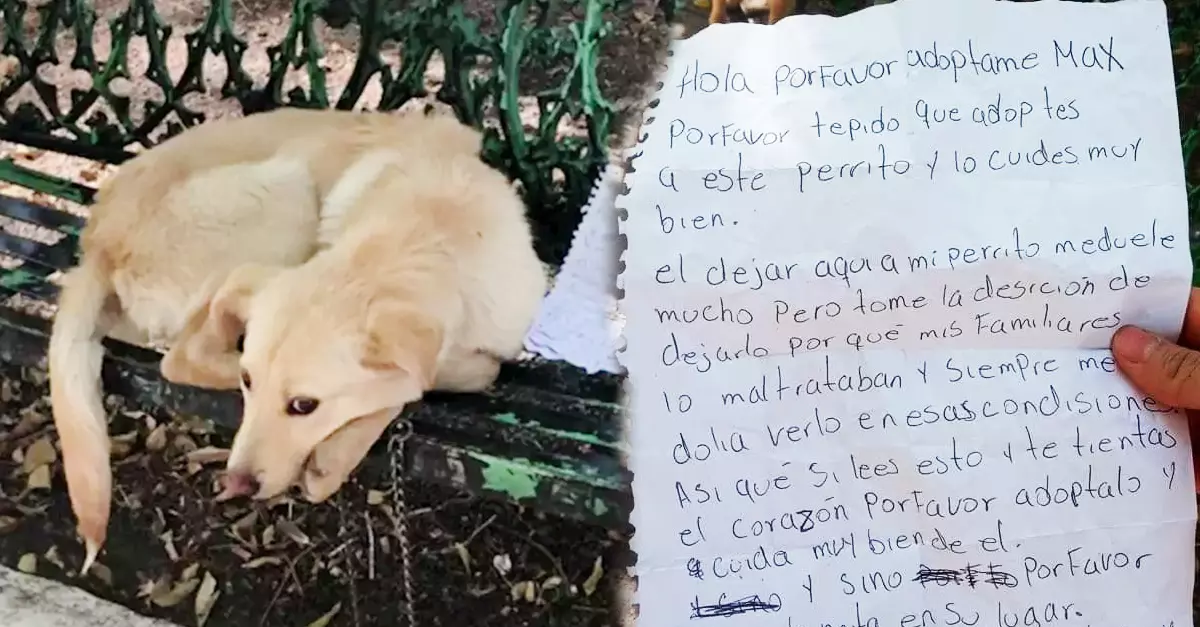 Hola PorFavor adoptame Max
PorFavor tepido que adoptes
a este perrito y lo cuides muy
bien.
el dejar aqui a mi perrito meduele
mucho Pero tome la desición de
dejarlo por qué mis Familiares
lo maltrataban y siempre me
dolia verlo en esas condisiones
Asi qué si lees esto y te tientas
el corazón PorFavor adoptalo y
cuida muy bien de el.
y sino PorFavor
en su lugar.